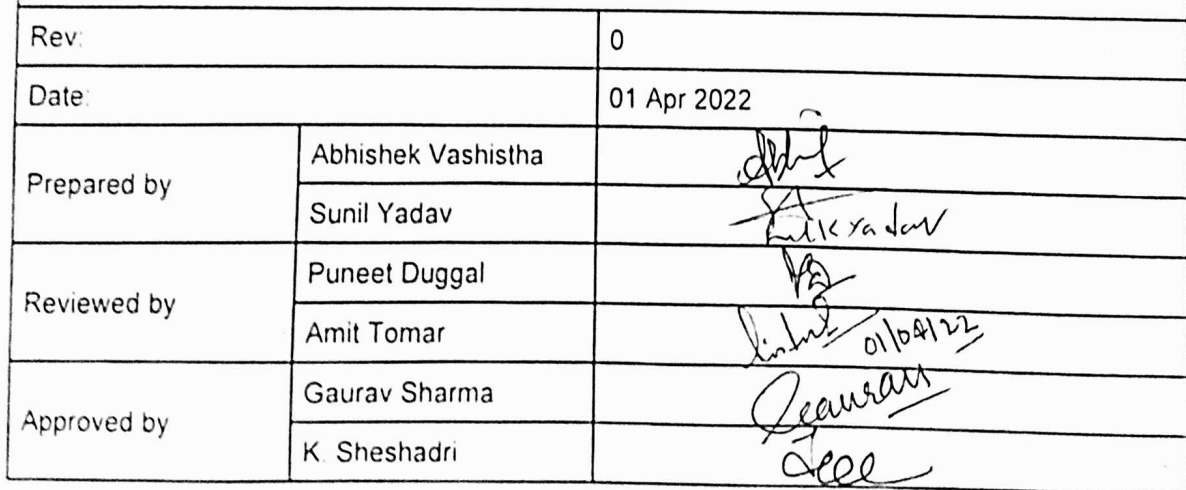 Rev: 0
Date: 01 Apr 2022
Prepared by
Abhishek Vashistha
Sunil Yadav
yadav
Reviewed by
Puneet Duggal
Amit Tomar
01/04/22
Approved by
Gaurav Sharma
Gaurav
K. Sheshadri